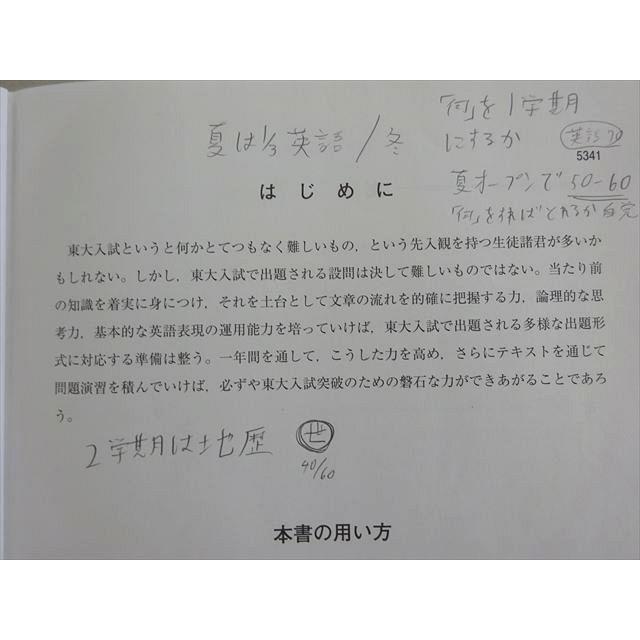 「何」を1学期
夏は1/3英語/冬
にするか
英語70
5341
はじめに
夏オープンで50-60
東大入試というと何かとてつもなく難しいもの，という先入観を持つ生徒諸君が多いか
もしれない。しかし，東大入試で出題される設問は決して難しいものではない。当たり前
の知識を着実に身につけ，それを土台として文章の流れを的確に把握する力，論理的な思
考力，基本的な英語表現の運用能力を培っていけば，東大入試で出題される多様な出題形
式に対応する準備は整う。一年間を通して，こうした力を高め，さらにテキストを通じて
問題演習を積んでいけば，必ずや東大入試突破のための磐石な力ができあがることであろ
う。
2学期は地歴 世
40/60
本書の用い方